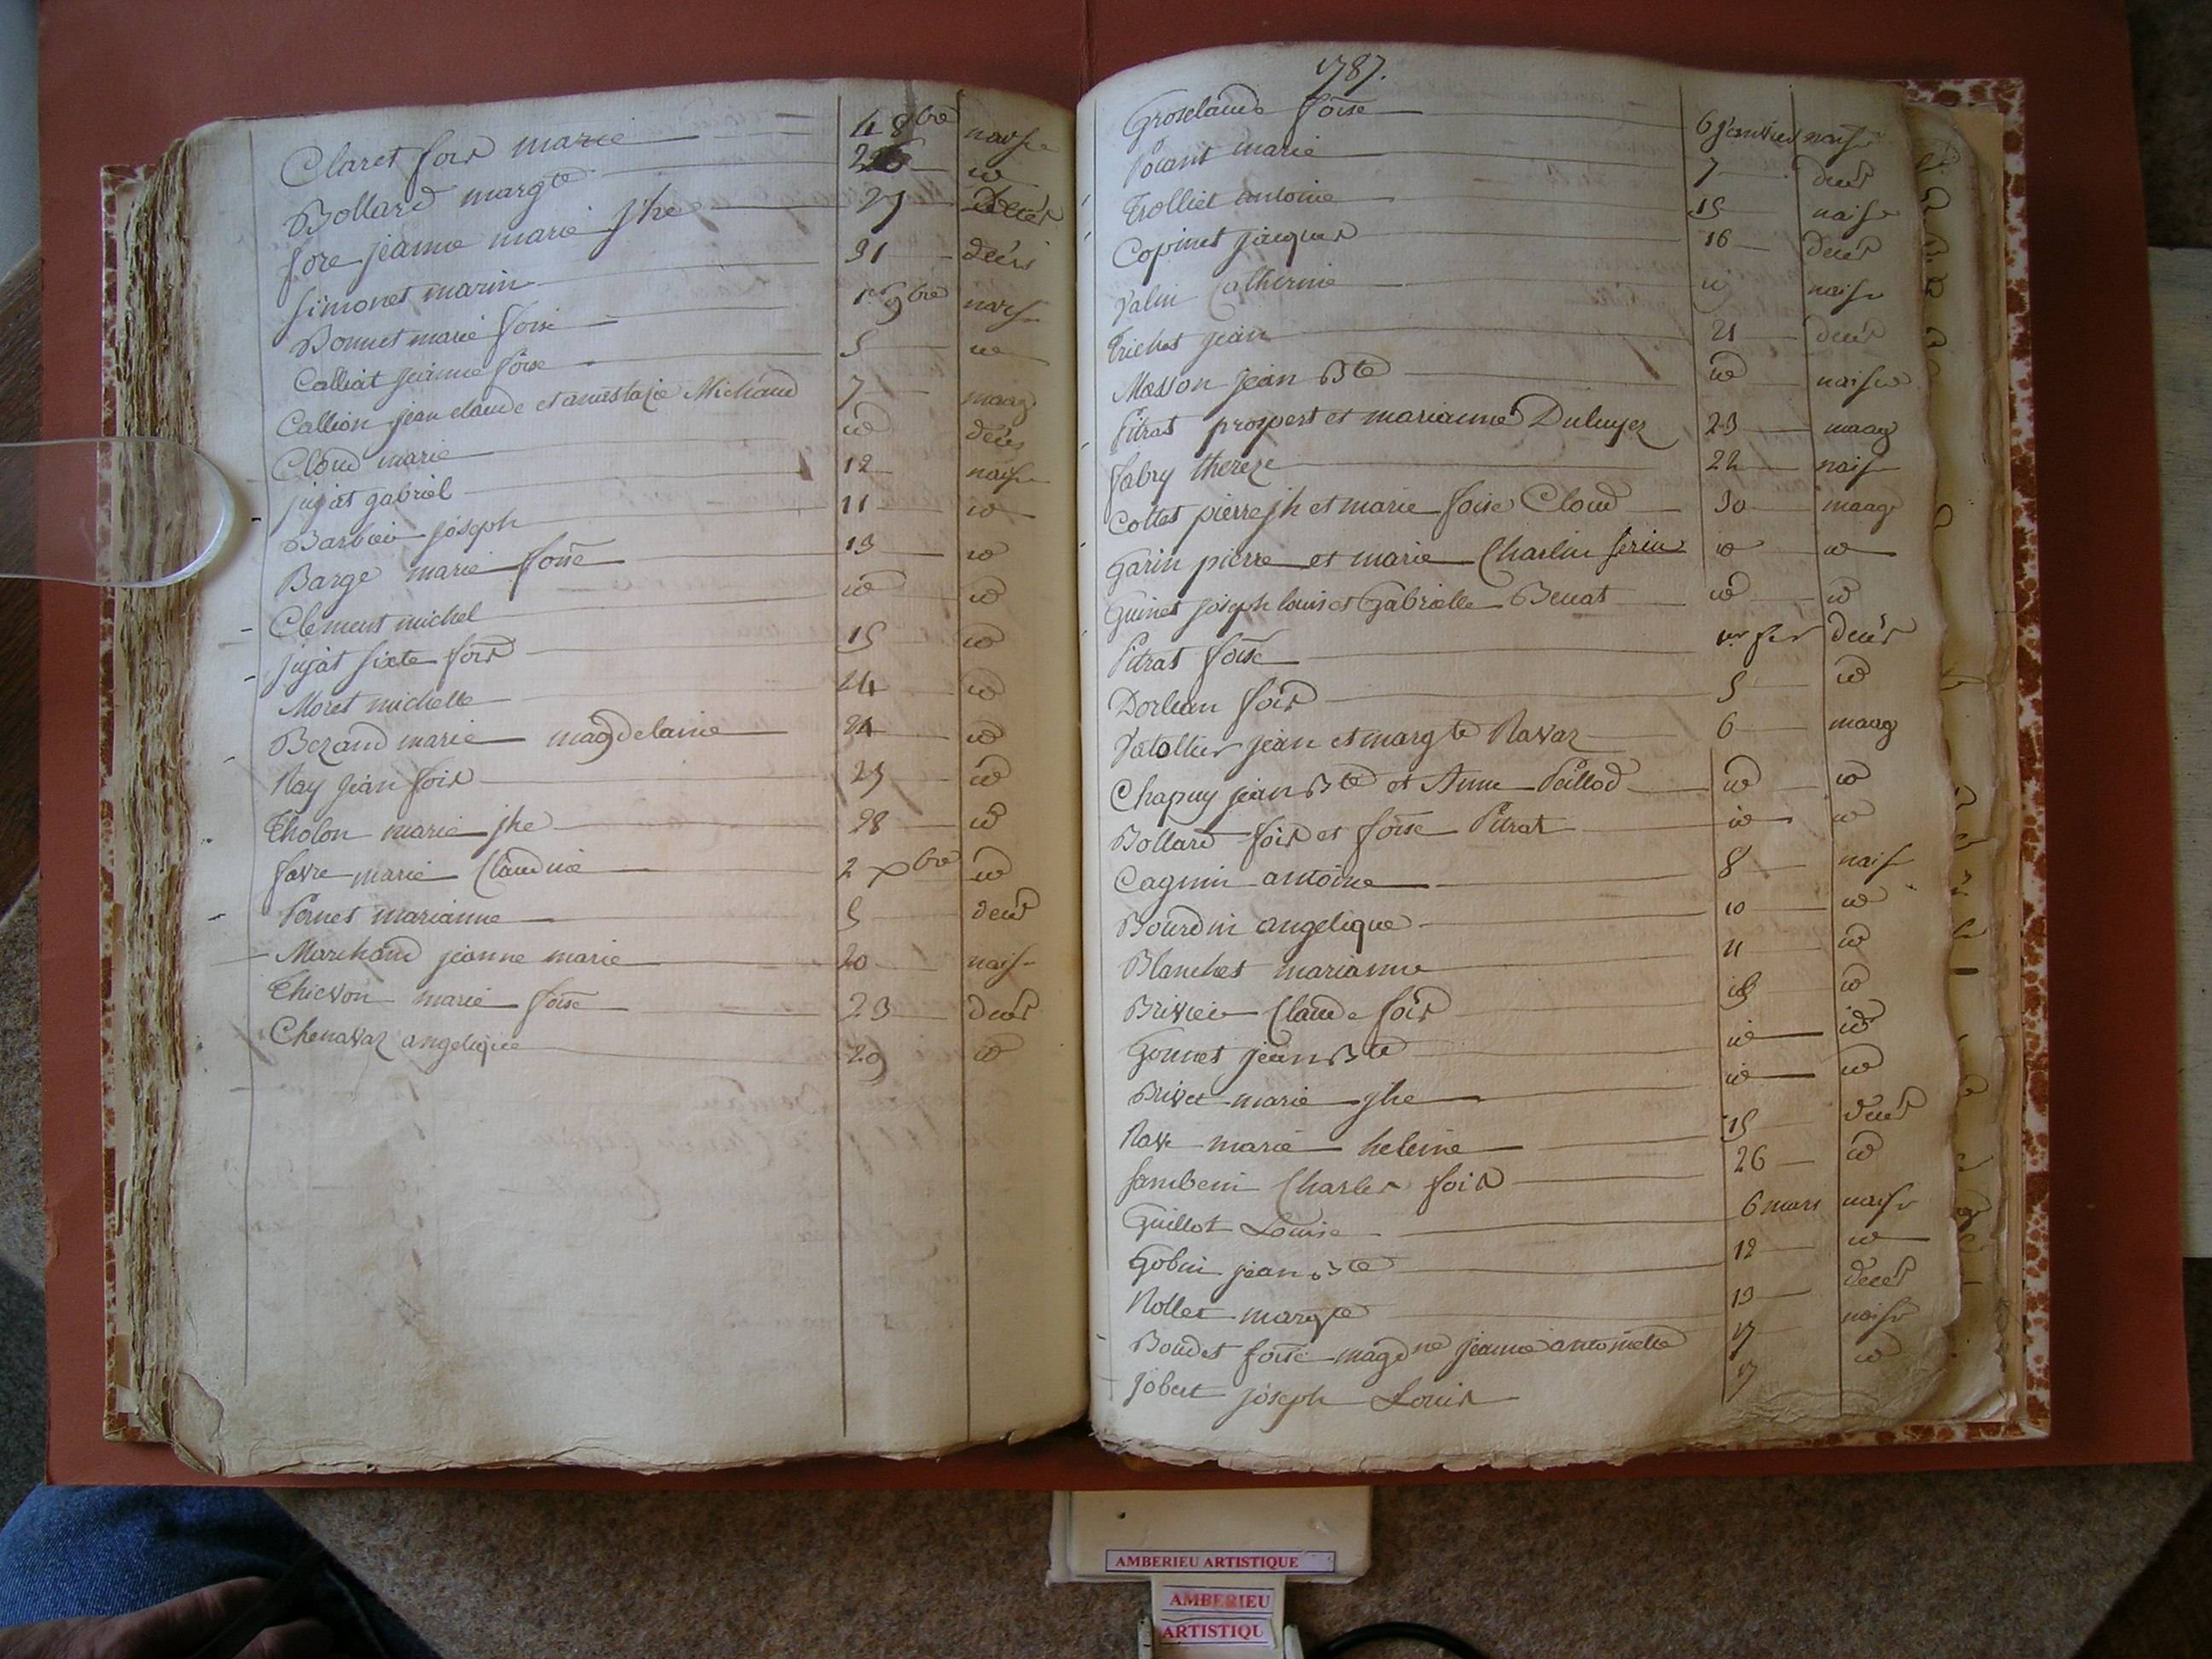 Claret fois marie 4 8bre naisce
Bollard margte 26 id
fore jeanne marie jhe 27 Deces
simonet marin 31 décès
Bonnet marie foise 1er 9bre naisce
Calliat jeanne foise 5 id
Callion jean claude et anastazie Michaud 7 maag
Cloud marie id décès
jujat gabriel 12 naisce
Barbier joseph 11 id
Barge marie foise 13 id
Clement michel id id
jujat sixte fois 15 id
Moret michelle 24 id
Bezand marie magdelaine 24 id
Ray jean fois 25 id
Tholon marie jhe 28 id
favre marie Claudine 2 xbre id
Pernet marianne 5 deces
Marchand jeanne marie 20 naisce
Thievon marie foise 23 deces
Chenavaz angelique 29 id
1787.
Groselaude foise 6 janvier naisce
marie 7 deces
Trolliet antoine 15 naisce
Copinet jacques 16 deces
Valin Catherine id naisce
Trichet jean 21 deces
Masson jean Bte id naisce
Pitrat prospert et marianne 23 maag
fabry thereze 22 naisce
Cottet pierre jh et marie foise Cloud 30 maag
Garin pierre et marie Charlin serin id id
Guinet joseph louis et Gabrielle Benat id id
Pitrat foise 1er fer deces
Dorlean fois 5 id
jean et margte Ravaz 6 maag
Chapuy jean Bte et Anne Peillod id id
Bollard fois et foise Pitrat id id
Cagnin antoine 8 naisce
Bourdin angelique 10 id
Blanchet marianne 11 id
Brivier Claude fois id
Gonnet jean Bte id id
Brivet marie jhe id id
Rave marie heleine 15 deces
Charles fois 26 id
Guillot Louise 6 mars naisce
Gobin jean Bte 12 id
Rollet margte 13 deces
Boudet foise magdne jeanne antoinette 17 naisce
jobert joseph Louis 17 id
AMBERIEU ARTISTIQUE
AMBERIEU
ARTISTIQU